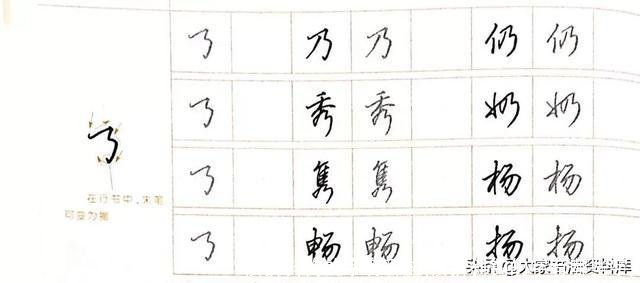 ㇋ 乃 乃 仍 仍
㇋ 秀 秀 奶 奶
㇋ 隽 隽 杨 杨
㇋
在行书中，末笔
可变为撇
㇋ 畅 畅 扬 扬
头条@大家书法资料库